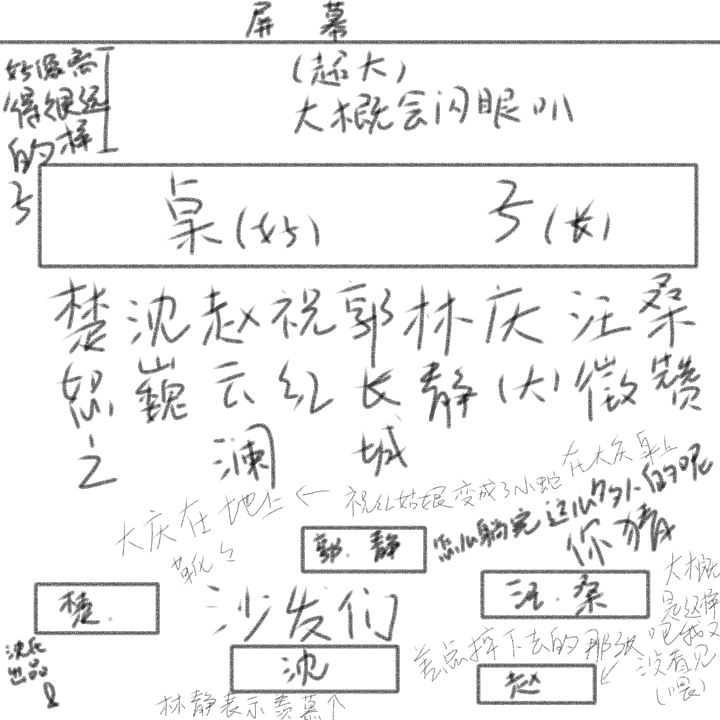 屏 幕
(超大)
大概会闪眼叭
好像高
得很远
的样
子
桌(好) 子(长)
楚 沈 赵 祝 郭 林 庆 汪 桑
恕 巍 云 红 长 静 (大) 徵 赞
之 澜 城
大庆在地上 ← 祝红姑娘变成了小蛇在大庆桌上
怎么躺完这么多人的呢
你猜
郭.静
楚.
沙发们
汪.桑
沈
赵
差点摔下去的那张
大概
是这样
吧我又
没看见
(喂)
沈氏
出品
林静表示羡慕个